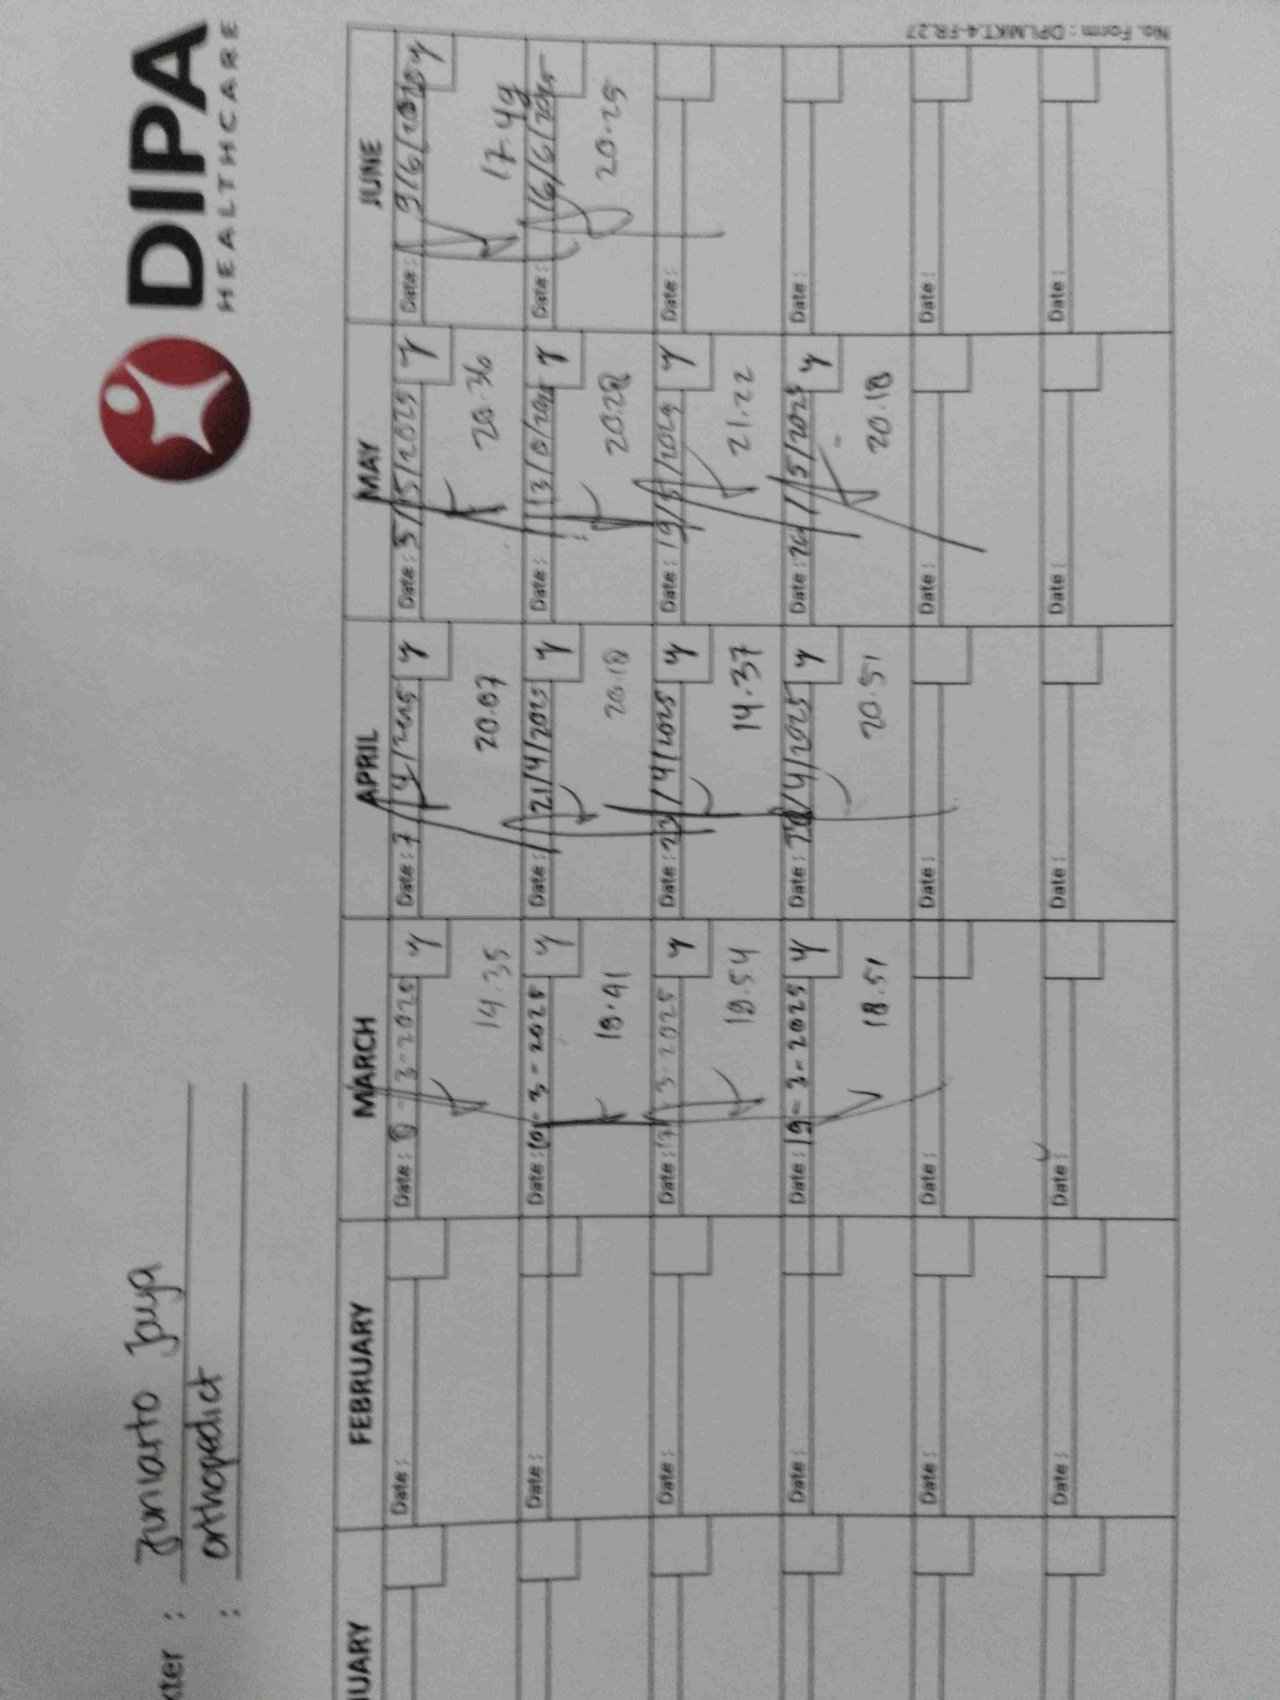 DIPA
HEALTHCARE
kter : Juniarto Jaya
: orthopedict
UARY FEBRUARY MARCH APRIL MAY JUNE
Date : Date : - 3 - 2025 y Date : 7 / 4 / 2025 y Date : 5 / 5 / 2025 y Date : 9/6/2025 y
14.35 20.07 20.36 17.49
Date : Date : 10 - 3 - 2025 y Date : 21/4/2025 y Date : 13/ /2025 y Date : 16/6/2025
19.41 20.18 20.28 20.25
Date : Date : 17 3 - 2025 y Date : 23/4/2025 y Date : 19/5/2025 y Date :
19.54 14.37 21.22
Date : Date : 19 - 3 - 2025 y Date : /4/2025 y Date : 26 / 5/2025 y Date :
18.51 20.51 20.18
Date : Date : Date : Date : Date :
Date : Date : Date : Date : Date :
No. Form : DPI.MKT.4-FR.27